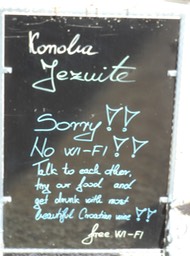 Konoba
Jezuite
Sorry!!
No WI-FI!!
Talk to each other,
try our food and
get drunk with most
beautiful Croatian wine !!
free WI-FI